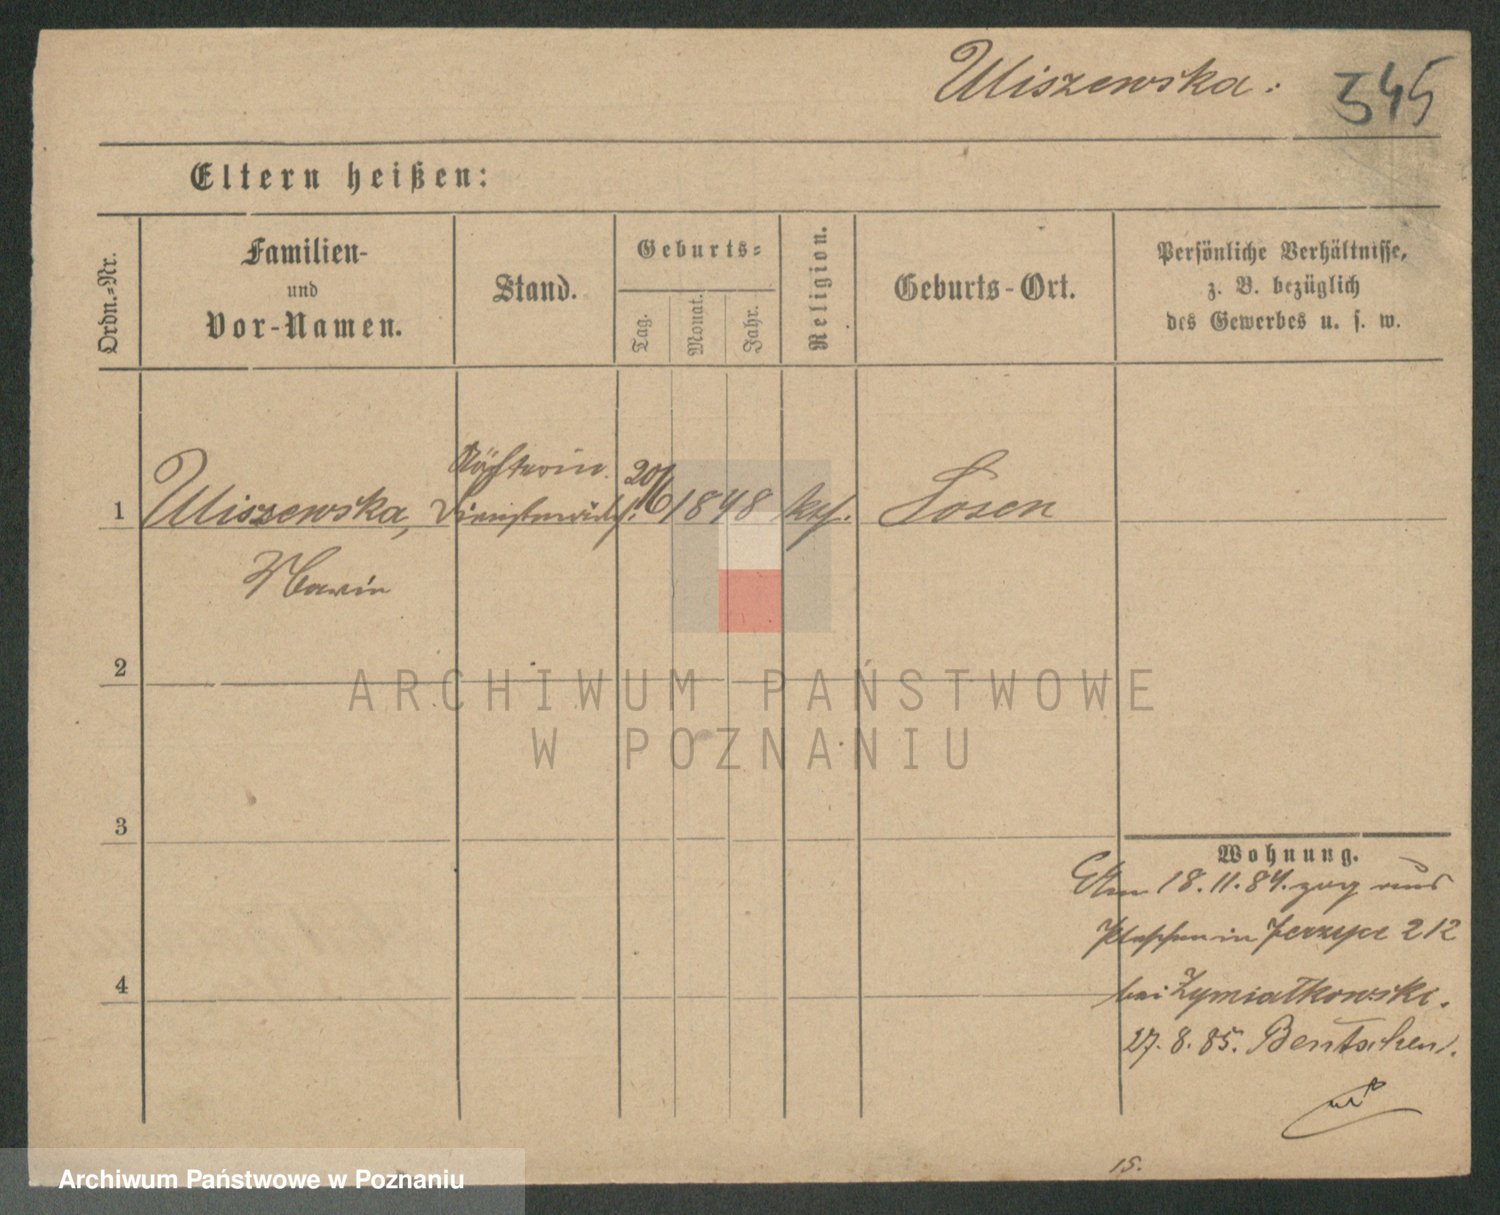 Uliszewska.
345
Eltern heißen:
Ordn.-Nr.
Familien-
und
Vor-Namen.
Stand.
Geburts-
Tag.
Monat.
Jahr.
Religion.
Geburts-Ort.
Persönliche Verhältnisse,
z. B. bezüglich
des Gewerbes u. s. w.
1 Uliszewska,
Marie
20/6 1848 kth. Posen
2
3
4
Wohnung.
Am 18.11.84. zog aus
Pleschen in Jerzyce 212
bei Zymiatkowski.
27. 8. 85. Bentschen.
15.
ARCHIWUM PAŃSTWOWE
W POZNANIU
Archiwum Państwowe w Poznaniu